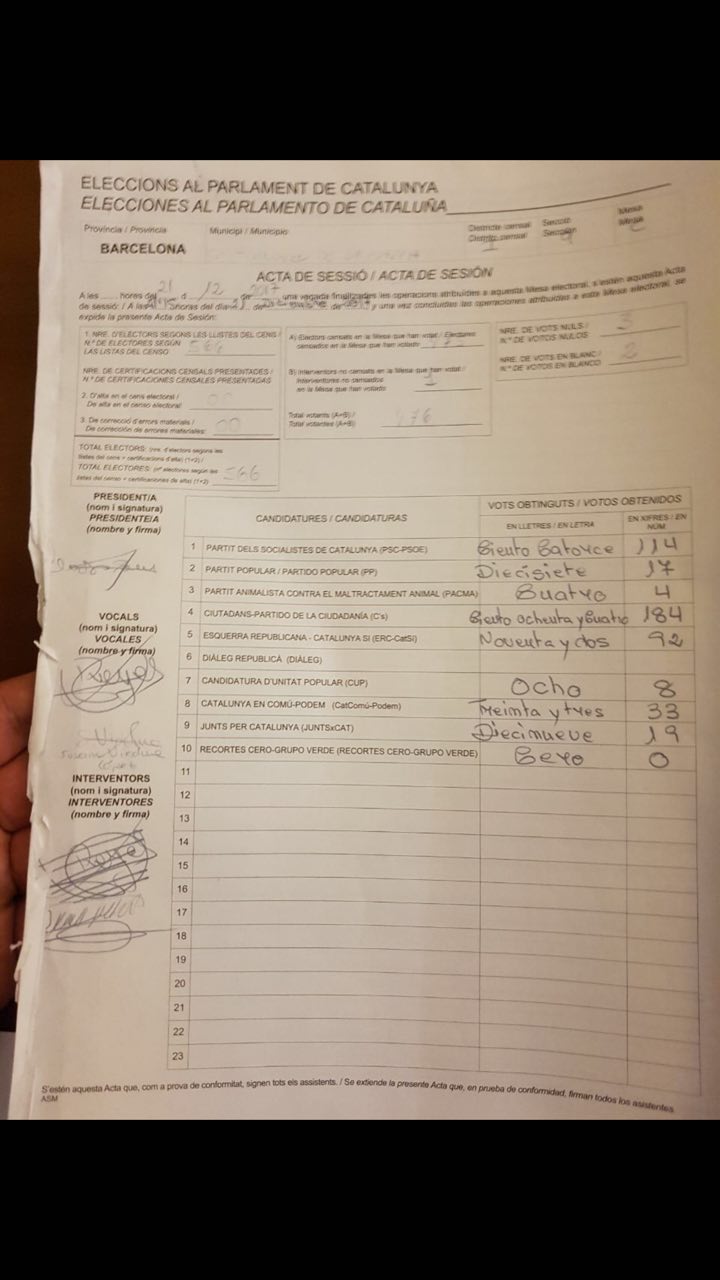 ELECCIONS AL PARLAMENT DE CATALUNYA
ELECCIONES AL PARLAMENTO DE CATALUÑA
Província / Provincia Municipi / Municipio Districte censal Secció Mesa
Distrito censal Sección Mesa
BARCELONA
ACTA DE SESSIÓ / ACTA DE SESIÓN
A les hores del 21 d 12 de 2017 una vegada finalitzades les operacions atribuïdes a aquesta Mesa electoral, s'estén aquesta Acta
de sessió: / A las horas del día de de y una vez concluidas las operaciones atribuidas a esta Mesa electoral, se
expide la presente Acta de Sesión:
1. NRE. D'ELECTORS SEGONS LES LLISTES DEL CENS /
N.º DE ELECTORES SEGÚN
LAS LISTAS DEL CENSO
NRE. DE CERTIFICACIONS CENSALS PRESENTADES /
N.º DE CERTIFICACIONES CENSALES PRESENTADAS
2. D'alta en el cens electoral /
De alta en el censo electoral:
3. De correcció d'errors materials /
De corrección de errores materiales: 00
TOTAL ELECTORS: (nre. d'electors segons les
llistes del cens + certificacions d'alta) (1+2) /
TOTAL ELECTORES: (nº electores según las
listas del censo + certificaciones de alta) (1+2) 566
A) Electors censats en la Mesa que han votat / Electores
censados en la Mesa que han votado
B) Interventors no censats en la Mesa que han votat /
Interventores no censados
en la Mesa que han votado 1
Total votants (A+B) /
Total votantes (A+B) 476
NRE. DE VOTS NULS /
N.º DE VOTOS NULOS 3
NRE. DE VOTS EN BLANC /
N.º DE VOTOS EN BLANCO 2
PRESIDENT/A
(nom i signatura)
PRESIDENTE/A
(nombre y firma)
VOCALS
(nom i signatura)
VOCALES
(nombre y firma)
INTERVENTORS
(nom i signatura)
INTERVENTORES
(nombre y firma)
CANDIDATURES / CANDIDATURAS VOTS OBTINGUTS / VOTOS OBTENIDOS
EN LLETRES / EN LETRA EN XIFRES / EN NÚM.
1 PARTIT DELS SOCIALISTES DE CATALUNYA (PSC-PSOE) Ciento Catorce 114
2 PARTIT POPULAR / PARTIDO POPULAR (PP) Diecisiete 17
3 PARTIT ANIMALISTA CONTRA EL MALTRACTAMENT ANIMAL (PACMA) Cuatro 4
4 CIUTADANS-PARTIDO DE LA CIUDADANÍA (C's) Ciento Ochenta y Cuatro 184
5 ESQUERRA REPUBLICANA - CATALUNYA SÍ (ERC-CatSí) Noventa y dos 92
6 DIÀLEG REPUBLICÀ (DIÀLEG)
7 CANDIDATURA D'UNITAT POPULAR (CUP) Ocho 8
8 CATALUNYA EN COMÚ-PODEM (CatComú-Podem) Treinta y tres 33
9 JUNTS PER CATALUNYA (JUNTSxCAT) Diecinueve 19
10 RECORTES CERO-GRUPO VERDE (RECORTES CERO-GRUPO VERDE) Cero 0
11
12
13
14
15
16
17
18
19
20
21
22
23
S'estén aquesta Acta que, com a prova de conformitat, signen tots els assistents. / Se extiende la presente Acta que, en prueba de conformidad, firman todos los asistentes.
ASM